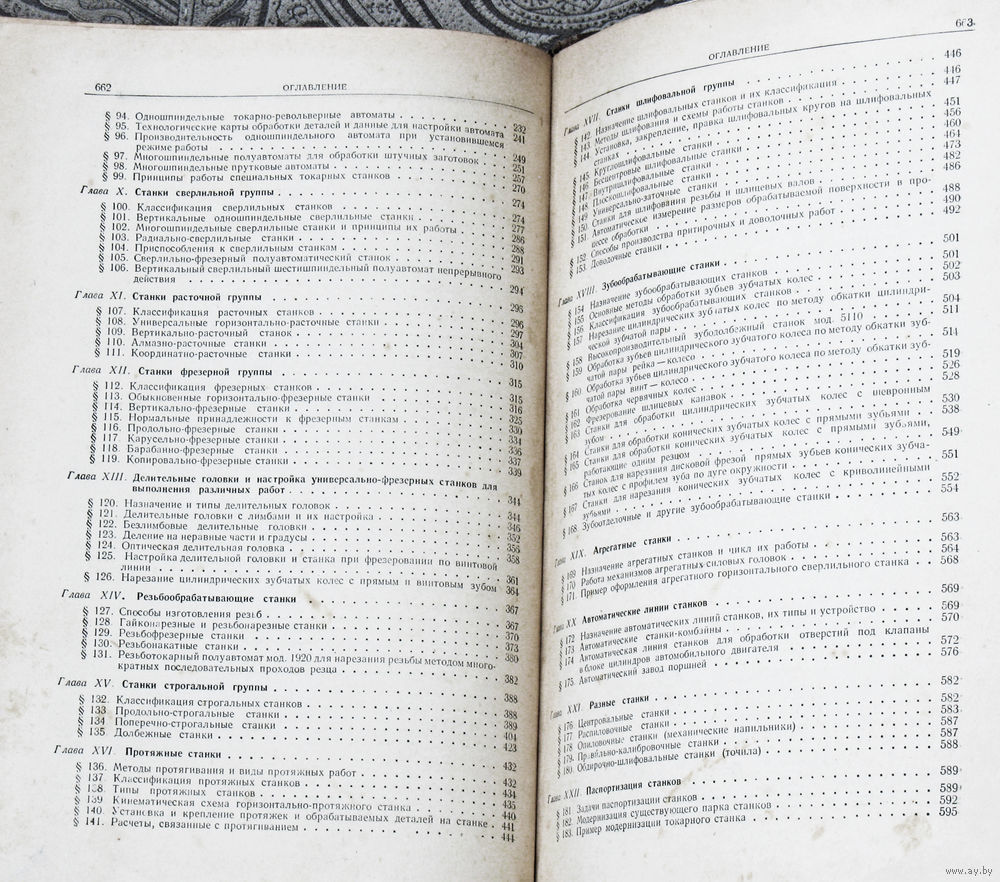 662 ОГЛАВЛЕНИЕ
§ 94. Одношпиндельные токарно-револьверные автоматы
§ 95. Технологические карты обработки деталей и данные для настройки автомата 232
§ 96. Производительность одношпиндельного автомата при установившемся 241
режиме работы
§ 97. Многошпиндельные полуавтоматы для обработки штучных заготовок 249
§ 98. Многошпиндельные прутковые автоматы 251
§ 99. Принципы работы специальных токарных станков 257
Глава X. Станки сверлильной группы 270
§ 100. Классификация сверлильных станков 274
§ 101. Вертикальные одношпиндельные сверлильные станки 274
§ 102. Многошпиндельные сверлильные станки и принципы их работы 277
§ 103. Радиально-сверлильные станки 286
§ 104. Приспособления к сверлильным станкам 288
§ 105. Сверлильно-фрезерный полуавтоматический станок 291
§ 106. Вертикальный сверлильный шестишпиндельный полуавтомат непрерывного 293
действия 294
Глава XI. Станки расточной группы
§ 107. Классификация расточных станков 295
§ 108. Универсальные горизонтально-расточные станки 296
§ 109. Вертикально-расточный станок 297
§ 110. Алмазно-расточные станки 304
§ 111. Координатно-расточные станки 307
Глава XII. Станки фрезерной группы 310
§ 112. Классификация фрезерных станков 315
§ 113. Обыкновенные горизонтально-фрезерные станки 315
§ 114. Вертикально-фрезерные станки 316
§ 115. Нормальные принадлежности к фрезерным станкам 325
§ 116. Продольно-фрезерные станки 330
§ 117. Карусельно-фрезерные станки 334
§ 118. Барабанно-фрезерные станки 336
§ 119. Копировально-фрезерные станки 337
339
Глава XIII. Делительные головки и настройка универсально-фрезерных станков для
выполнения различных работ 344
§ 120. Назначение и типы делительных головок
§ 121. Делительные головки с лимбами и их настройка 344
§ 122. Безлимбовые делительные головки 346
§ 123. Деление на неравные части и градусы 352
§ 124. Оптическая делительная головка 356
§ 125. Настройка делительной головки и станка при фрезеровании по винтовой 358
линии 361
§ 126. Нарезание цилиндрических зубчатых колес с прямым и винтовым зубом 364
Глава XIV. Резьбообрабатывающие станки 367
§ 127. Способы изготовления резьб
§ 128. Гайконарезные и резьбонарезные станки 367
§ 129. Резьбофрезерные станки 370
§ 130. Резьбонакатные станки 373
§ 131. Резьботокарный полуавтомат мод. 1920 для нарезания резьбы методом много- 380
кратных последовательных проходов резца 382
Глава XV. Станки строгальной группы 388
§ 132. Классификация строгальных станков
§ 133 Продольно-строгальные станки 388
§ 134 Поперечно-строгальные станки 389
§ 135. Долбежные станки 404
423
Глава XVI. Протяжные станки 432
§ 136. Методы протягивания и виды протяжных работ
§ 137. Классификация протяжных станков 432
§ 138. Типы протяжных станков 434
§ 139 Кинематическая схема горизонтально-протяжного станка 435
§ 140. Установка и крепление протяжек и обрабатываемых деталей на станке 440
§ 141. Расчеты, связанные с протягиванием 441
444
ОГЛАВЛЕНИЕ 663
Глава XVII. Станки шлифовальной группы 446
§ 142. Назначение шлифовальных станков и их классификация 446
§ 143. Методы шлифования и схемы работы станков 447
§ 144. Установка, закрепление, правка шлифовальных кругов на шлифовальных
станках 451
§ 145. Круглошлифовальные станки 456
§ 146. Бесцентровые шлифовальные станки 460
§ 147. Внутришлифовальные станки 464
§ 148. Плоскошлифовальные станки 473
§ 149. Универсально-заточные станки 482
§ 150. Станки для шлифования резьбы и шлицевых валов 486
§ 151. Автоматическое измерение размеров обрабатываемой поверхности в про-
цессе обработки 488
§ 152. Способы производства притирочных и доводочных работ 490
§ 153. Доводочные станки 492
Глава XVIII. Зубообрабатывающие станки 501
§ 154. Назначение зубообрабатывающих станков 501
§ 155. Основные методы обработки зубьев зубчатых колес 502
§ 156. Классификация зубообрабатывающих станков 503
§ 157. Нарезание цилиндрических зубчатых колес по методу обкатки цилиндри-
ческой зубчатой пары 504
§ 158 Высокопроизводительный зубодолбежный станок мод. 5110 511
§ 159. Обработка зубьев цилиндрического зубчатого колеса по методу обкатки зуб-
чатой пары рейка — колесо 514
§ 160 Обработка зубьев цилиндрического зубчатого колеса по методу обкатки зуб-
чатой пары винт — колесо 519
§ 161. Обработка червячных колес 526
§ 162 Фрезерование шлицевых канавок 528
§ 163 Станки для обработки цилиндрических зубчатых колес с шевронным
зубом 530
§ 164 Станки для обработки конических зубчатых колес с прямыми зубьями 538
§ 165 Станки для обработки конических зубчатых колес с прямыми зубьями,
работающие одним резцом 549
§ 166 Станок для нарезания дисковой фрезой прямых зубьев конических зубча-
тых колес с профилем зуба по дуге окружности 551
§ 167 Станки для нарезания конических зубчатых колес с криволинейными
зубьями 552
§ 168. Зубоотделочные и другие зубообрабатывающие станки 554
Глава XIX. Агрегатные станки 563
§ 169 Назначение агрегатных станков и цикл их работы 563
§ 170 Работа механизмов агрегатных силовых головок 564
§ 171. Пример оформления агрегатного горизонтального сверлильного станка 568
Глава XX Автоматические линии станков 569
§ 172 Назначение автоматических линий станков, их типы и устройство 569
§ 173 Автоматические станки-комбайны 570
§ 174 Автоматическая линия станков для обработки отверстий под клапаны
в блоке цилиндров автомобильного двигателя 572
§ 175. Автоматический завод поршней 576
Глава XXI. Разные станки 582
§ 176 Центровальные станки 582
§ 177 Распиловочные станки 583
§ 178 Опиловочные станки (механические напильники) 587
§ 179. Правильно-калибровочные станки 587
§ 180. Обдирочно-шлифовальные станки (точила) 588
Глава XXII. Паспортизация станков 589
§ 181 Задачи паспортизации станков 589
§ 182. Модернизация существующего парка станков 592
§ 183. Пример модернизации токарного станка 595
www.ay.by